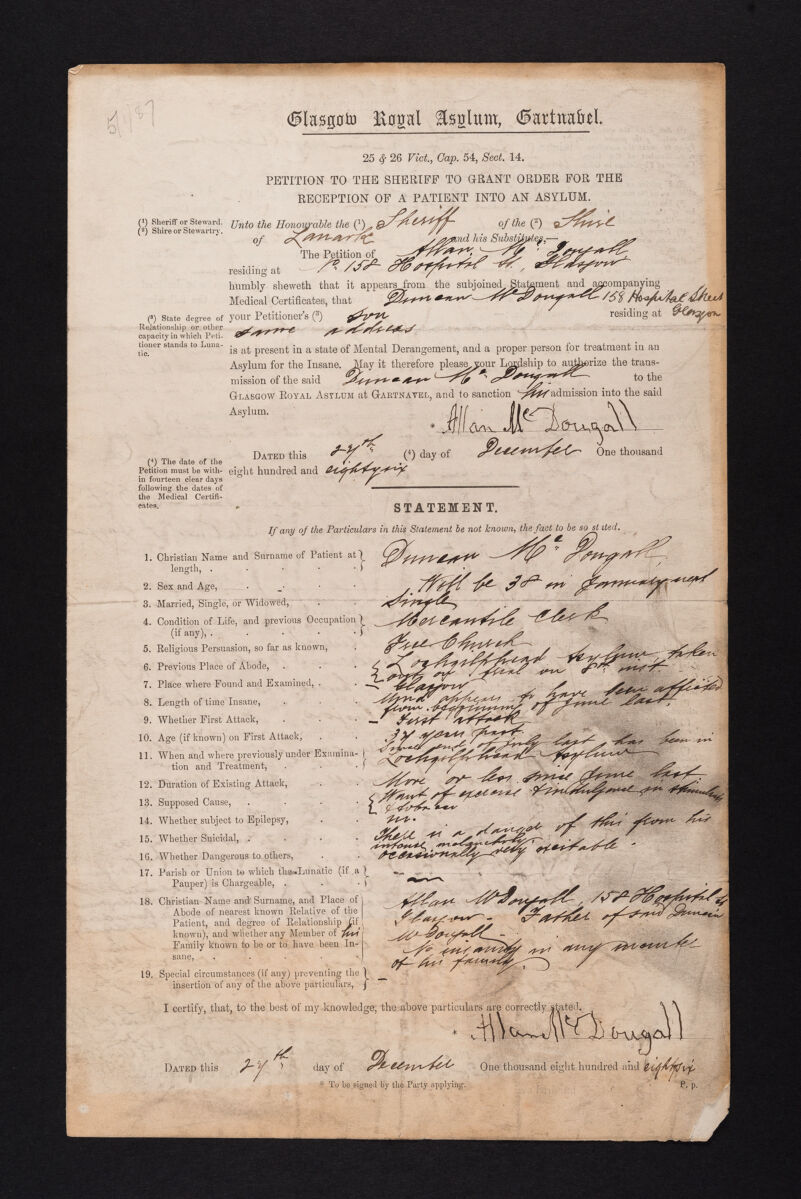 5/1/87
Glasgow Royal Asylum, Gartnavel.
25 & 26 Vict., Cap. 54, Sect. 14.
PETITION TO THE SHERIFF TO GRANT ORDER FOR THE
RECEPTION OF A PATIENT INTO AN ASYLUM.
(1) Sheriff or Steward.
(2) Shire or Stewartry.
Unto the Honourable the (1) Sheriff of the (2) Shire
of Lanark and his Substitutes,—
The Petition of Allan Mc Dougall
residing at 158 Hospital St, Glasgow
humbly sheweth that it appears from the subjoined Statement and accompanying
Medical Certificates, that Duncan McDougall 158 Hospital Street
Glasgow
(3) State degree of
Relationship or other
capacity in which Peti-
tioner stands to Luna-
tic.
your Petitioner's (3) Son residing at
same address
is at present in a state of Mental Derangement, and a proper person for treatment in an
Asylum for the Insane. May it therefore please your Lordship to authorize the trans-
mission of the said Duncan Mc Dougall to the
GLASGOW ROYAL ASYLUM at GARTNAVEL, and to sanction his admission into the said
Asylum.
* Allan Mc Dougall
(4) The date of the
Petition must be with-
in fourteen clear days
following the dates of
the Medical Certifi-
cates.
DATED this 27th (4) day of December One thousand
eight hundred and eightysix
STATEMENT.
If any of the Particulars in this Statement be not known, the fact to be so stated.
1. Christian Name and Surname of Patient at length, . Duncan Mc Dougall
2. Sex and Age, Will be 38 in January next
3. Married, Single, or Widowed, Single
4. Condition of Life, and previous Occupation (if any), . Mercantile Clerk
5. Religious Persuasion, so far as known, Free Church
6. Previous Place of Abode, Lochgilphead Asylum, taken
out on trial on 8th inst.
7. Place where Found and Examined, Glasgow
8. Length of time Insane, Mind appears to have been affected
from beginning of June last.
9. Whether First Attack, First attack
10. Age (if known) on First Attack, 37 years past.
11. When and where previously under Examina-tion and Treatment, Since end of July last has been in
Lochgilphead Asylum
12. Duration of Existing Attack, More or less since June last
13. Supposed Cause, Want of exercise & indulgence in stimulants
& tobacco
14. Whether subject to Epilepsy, no.
15. Whether Suicidal, There is a danger of this from his
intense melancholy.
16. Whether Dangerous to others, occasionally very excitable.
17. Parish or Union to which the Lunatic (if a Pauper) is Chargeable,
18. Christian Name and Surname, and Place of
Abode of nearest known Relative of the
Patient, and degree of Relationship (if
known), and whether any Member of his
Family known to be or to have been In-
sane,
Allan McDougall, 158 Hospital St
Glasgow - Father of said Duncan
McDougall -
No insanity in any member
of his family.
19. Special circumstances (if any) preventing the
insertion of any of the above particulars, —
I certify, that, to the best of my knowledge, the above particulars are correctly stated.
* Allan Mc Dougall
DATED this 27th day of December One thousand eight hundred and eightysix
* To be signed by the Party applying.
P. p.